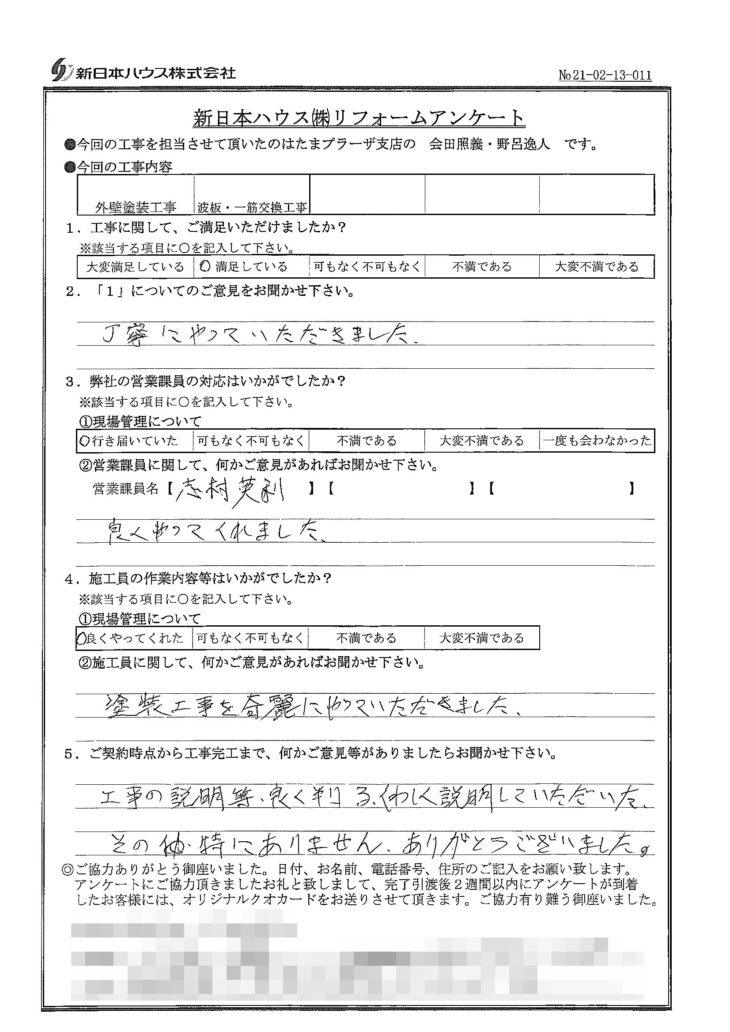 新日本ハウス株式会社
№21-02-13-011
新日本ハウス㈱リフォームアンケート
●今回の工事を担当させて頂いたのはたまプラーザ支店の 会田照義・野呂逸人 です。
●今回の工事内容
外壁塗装工事 波板・一筋交換工事
1．工事に関して、ご満足いただけましたか？
※該当する項目に○を記入して下さい。
大変満足している ○満足している 可もなく不可もなく 不満である 大変不満である
2．「1」についてのご意見をお聞かせ下さい。
丁寧にやっていただきました.
3．弊社の営業課員の対応はいかがでしたか？
※該当する項目に○を記入して下さい。
①現場管理について
○行き届いていた 可もなく不可もなく 不満である 大変不満である 一度も会わなかった
②営業課員に関して、何かご意見があればお聞かせ下さい。
営業課員名【志村英利 】【 】【 】
良くやってくれました.
4．施工員の作業内容等はいかがでしたか？
※該当する項目に○を記入して下さい。
①現場管理について
○良くやってくれた 可もなく不可もなく 不満である 大変不満である
②施工員に関して、何かご意見があればお聞かせ下さい。
塗装工事を奇麗にやっていただきました.
5．ご契約時点から工事完工まで、何かご意見等がありましたらお聞かせ下さい。
工事の説明等、良く判る、くわしく説明していただいた.
その他、特にありません、ありがとうございました。
◎ご協力ありがとう御座いました。日付、お名前、電話番号、住所のご記入をお願い致します。
アンケートにご協力頂きましたお礼と致しまして、完了引渡後２週間以内にアンケートが到着
したお客様には、オリジナルクオカードをお送りさせて頂きます。ご協力有り難う御座いました。